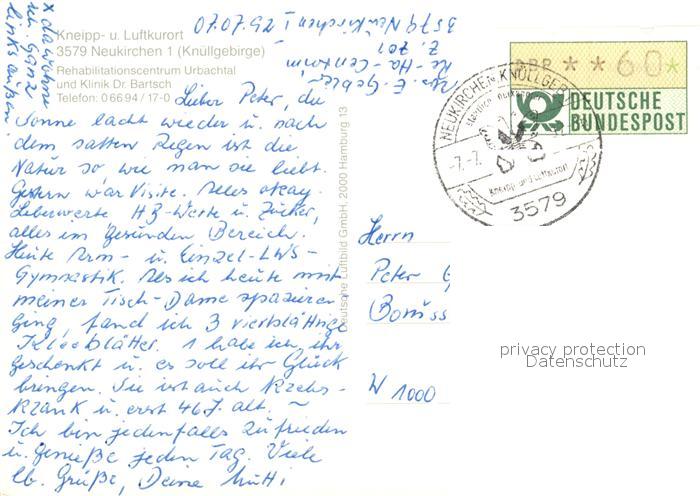 x da wohne
ich ganz
links außen.
Kneipp- u. Luftkurort
3579 Neukirchen 1 (Knüllgebirge)
Rehabilitationscentrum Urbachtal
und Klinik Dr. Bartsch
Telefon: 0 66 94 / 17-0
3579 Neukirchen 1
Z. 701
Re-Ha-Centrum
Abs. E. Gebler
Lieber Peter, die
Sonne lacht wieder u. nach
dem satten Regen ist die
Natur so, wie man sie liebt.
Gestern war Visite. Alles okay.
Leberwerte HB-Werte u. Zucker,
alles im gesunden Bereich.
Heute Arm- u. Einzel-LWS-
Gymnastik. Als ich heute mit
meiner Tisch-Dame spazieren
ging, fand ich 3 vierblättrige
Kleeblätter. 1 habe ich ihr
geschenkt u. es soll ihr Glück
bringen. Sie ist auch krebs-
krank u. erst 46 J. alt. ~
Ich bin jedenfalls zufrieden
u. genieße jeden Tag. Viele
lb. Grüße, Deine Mutti
Deutsche Luftbild GmbH, 2000 Hamburg 13
DBP * * 60 *
DEUTSCHE
BUNDESPOST
NEUKIRCHEN, KNÜLLGEB
Kneipp- und Luftkurort
3579
Herrn
Peter G
Boruss
W 1000
privacy protection
Datenschutz